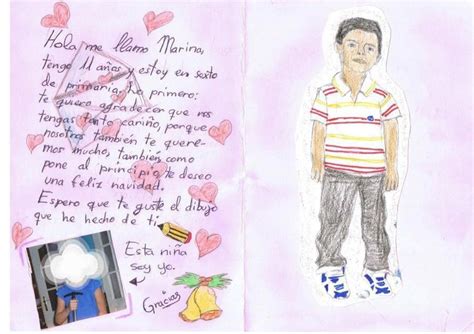 Hola me llamo Marina,
tengo 11 años y estoy en sexto
de primaria. Lo primero:
te quiero agradecer que nos
tengas tanto cariño, porque
nosotros también te quere-
mos mucho, también como
pone al principio te deseo
una feliz navidad.
Espero que te guste el dibujo
que he hecho de ti
Esta niña
soy yo.
Gracias